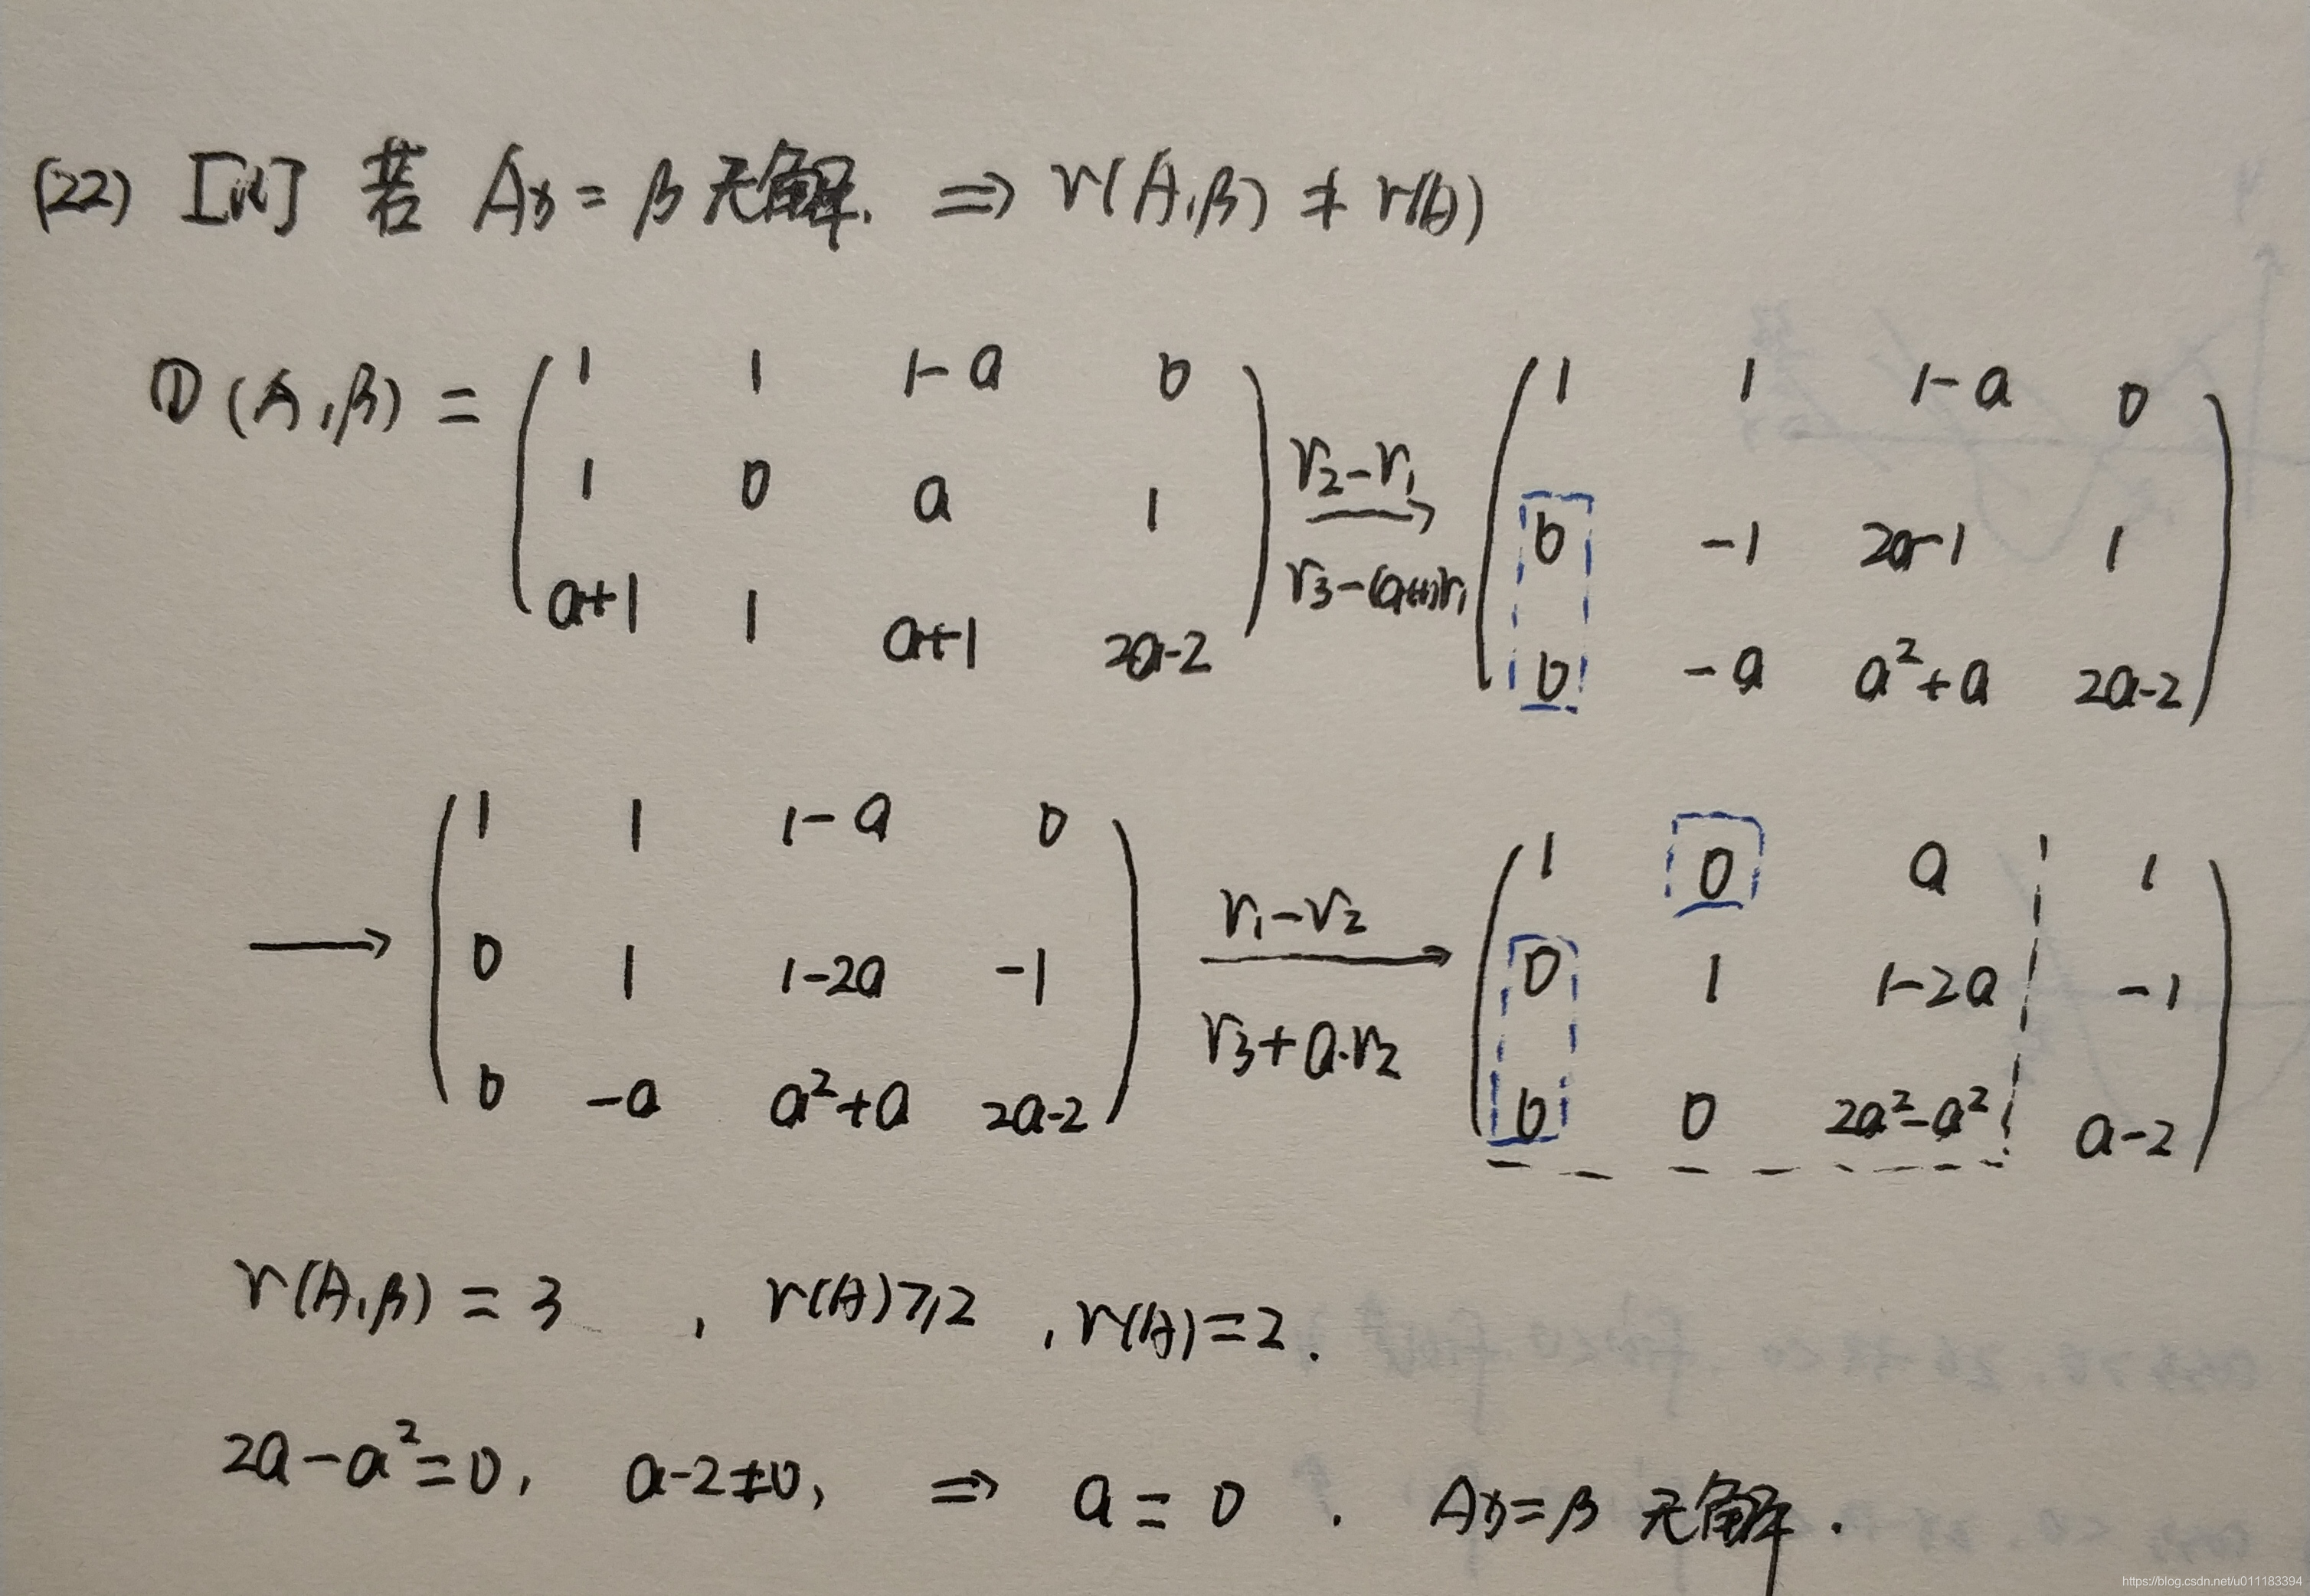 (22) [1] 若 Ax = β 无解. ⇒ r(A,β) ≠ r(A)
① (A,β) = ( 1 1 1-a 0 ; 1 0 a 1 ; a+1 1 a+1 2a-2 ) r2-r1 → r3-(a+1)r1 ( 1 1 1-a 0 ; 0 -1 2a-1 1 ; 0 -a a²+a 2a-2 )
→ ( 1 1 1-a 0 ; 0 1 1-2a -1 ; 0 -a a²+a 2a-2 ) r1-r2 → r3+a·r2 ( 1 0 a 1 ; 0 1 1-2a -1 ; 0 0 2a²-a² a-2 )
r(A,β) = 3 , r(A)⩾2 , r(A)=2.
2a-a²=0, a-2≠0, ⇒ a = 0 . Ax=β 无解.
https://blog.csdn.net/u011183394